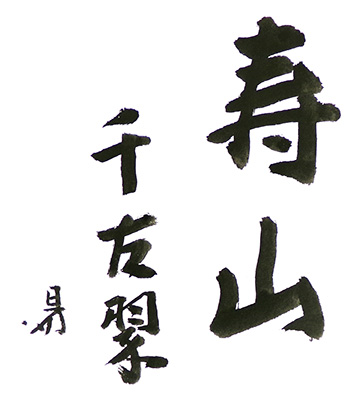 寿山
千古翠